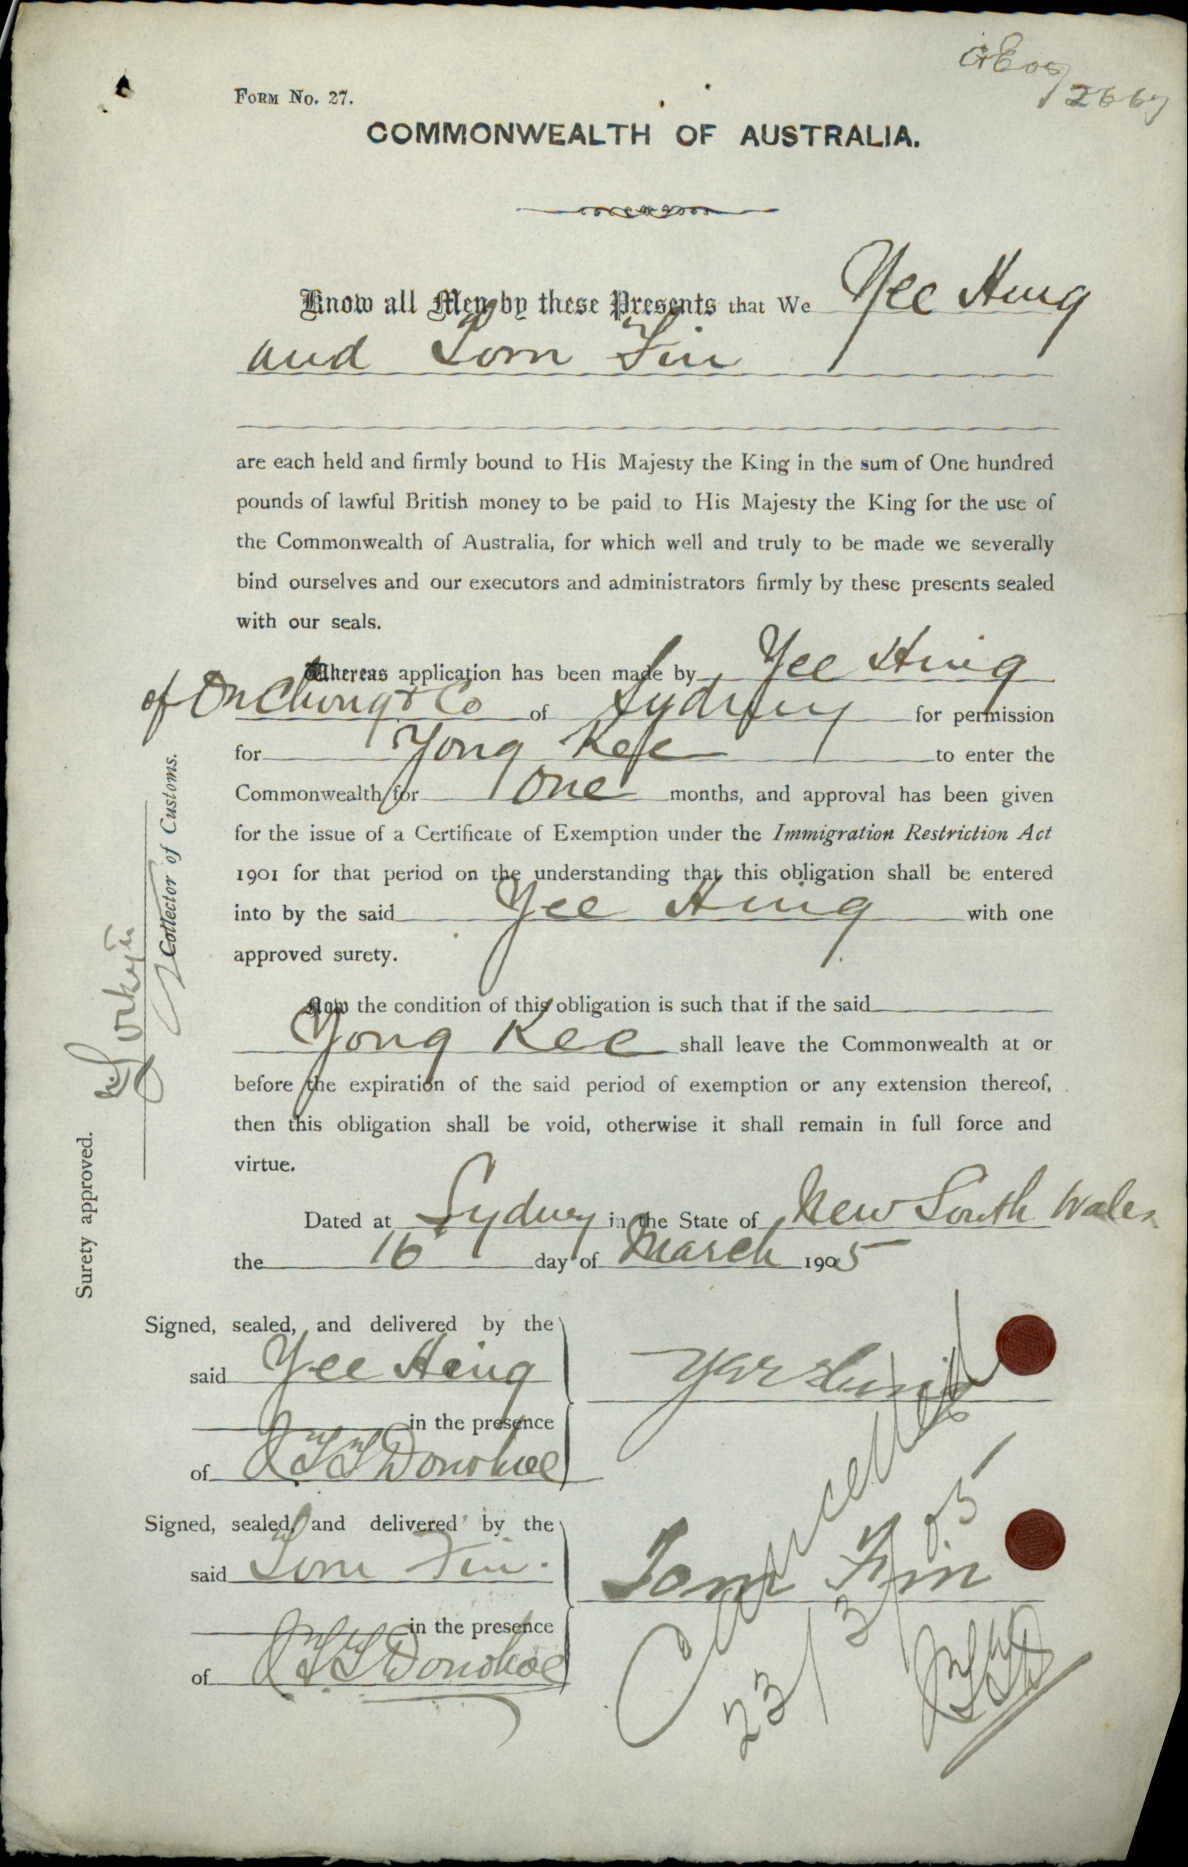 2667
Form No. 27.
COMMONWEALTH OF AUSTRALIA.
Know all Men by these Presents that We Yee Hing
and Tom Fin
are each held and firmly bound to His Majesty the King in the sum of One hundred
pounds of lawful British money to be paid to His Majesty the King for the use of
the Commonwealth of Australia, for which well and truly to be made we severally
bind ourselves and our executors and administrators firmly by these presents sealed
with our seals.
Whereas application has been made by Yee Hing
of On Chong & Co of Sydney for permission
for Yong Kee to enter the
Commonwealth for One months, and approval has been given
for the issue of a Certificate of Exemption under the Immigration Restriction Act
1901 for that period on the understanding that this obligation shall be entered
into by the said Yee Hing with one
approved surety.
Now the condition of this obligation is such that if the said
Yong Kee shall leave the Commonwealth at or
before the expiration of the said period of exemption or any extension thereof,
then this obligation shall be void, otherwise it shall remain in full force and
virtue.
Surety approved.
Collector of Customs.
Dated at Sydney in the State of New South Wales
the 16 day of March 1905
Signed, sealed, and delivered by the
said Yee Hing
in the presence
of Donohoe
Yee Hing
Signed, sealed, and delivered by the
said Tom Fin.
in the presence
of Donohoe
Tom Fin
Cancelled
23/3/05